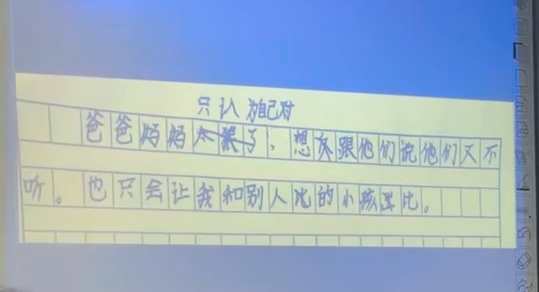 只认为自己对
爸爸妈妈太累了，想要跟他们说他们又不
听。也只会让我和别人比的小孩些比。